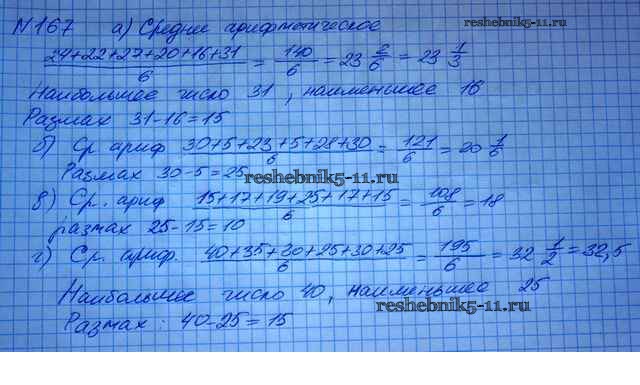 №167 а) Среднее арифметическое reshebnik5-11.ru
24+22+27+20+16+31/6 = 140/6 = 23 2/6 = 23 1/3
Наибольшее число 31, наименьшее 16
Размах 31-16=15
б) Ср. ариф 30+5+23+5+28+30/6 = 121/6 = 20 1/6
Размах 30-5=25 reshebnik5-11.ru
в) Ср. ариф 15+17+19+25+17+15/6 = 108/6 = 18
размах 25-15=10
г) Ср. ариф. 40+35+40+25+30+25/6 = 195/6 = 32 1/2 = 32,5
Наибольшее число 40, наименьшее 25
reshebnik5-11.ru
Размах: 40-25=15